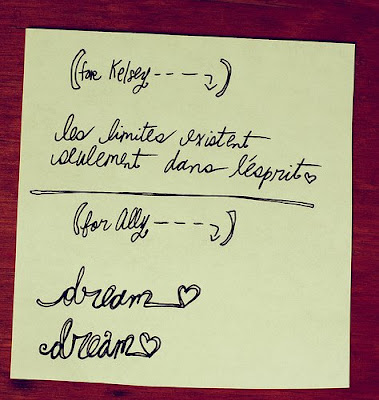 (for Kelsey ---->)
les limites existent
seulement dans l'esprit♡
(for Ally ---->)
dream♡
dream♡